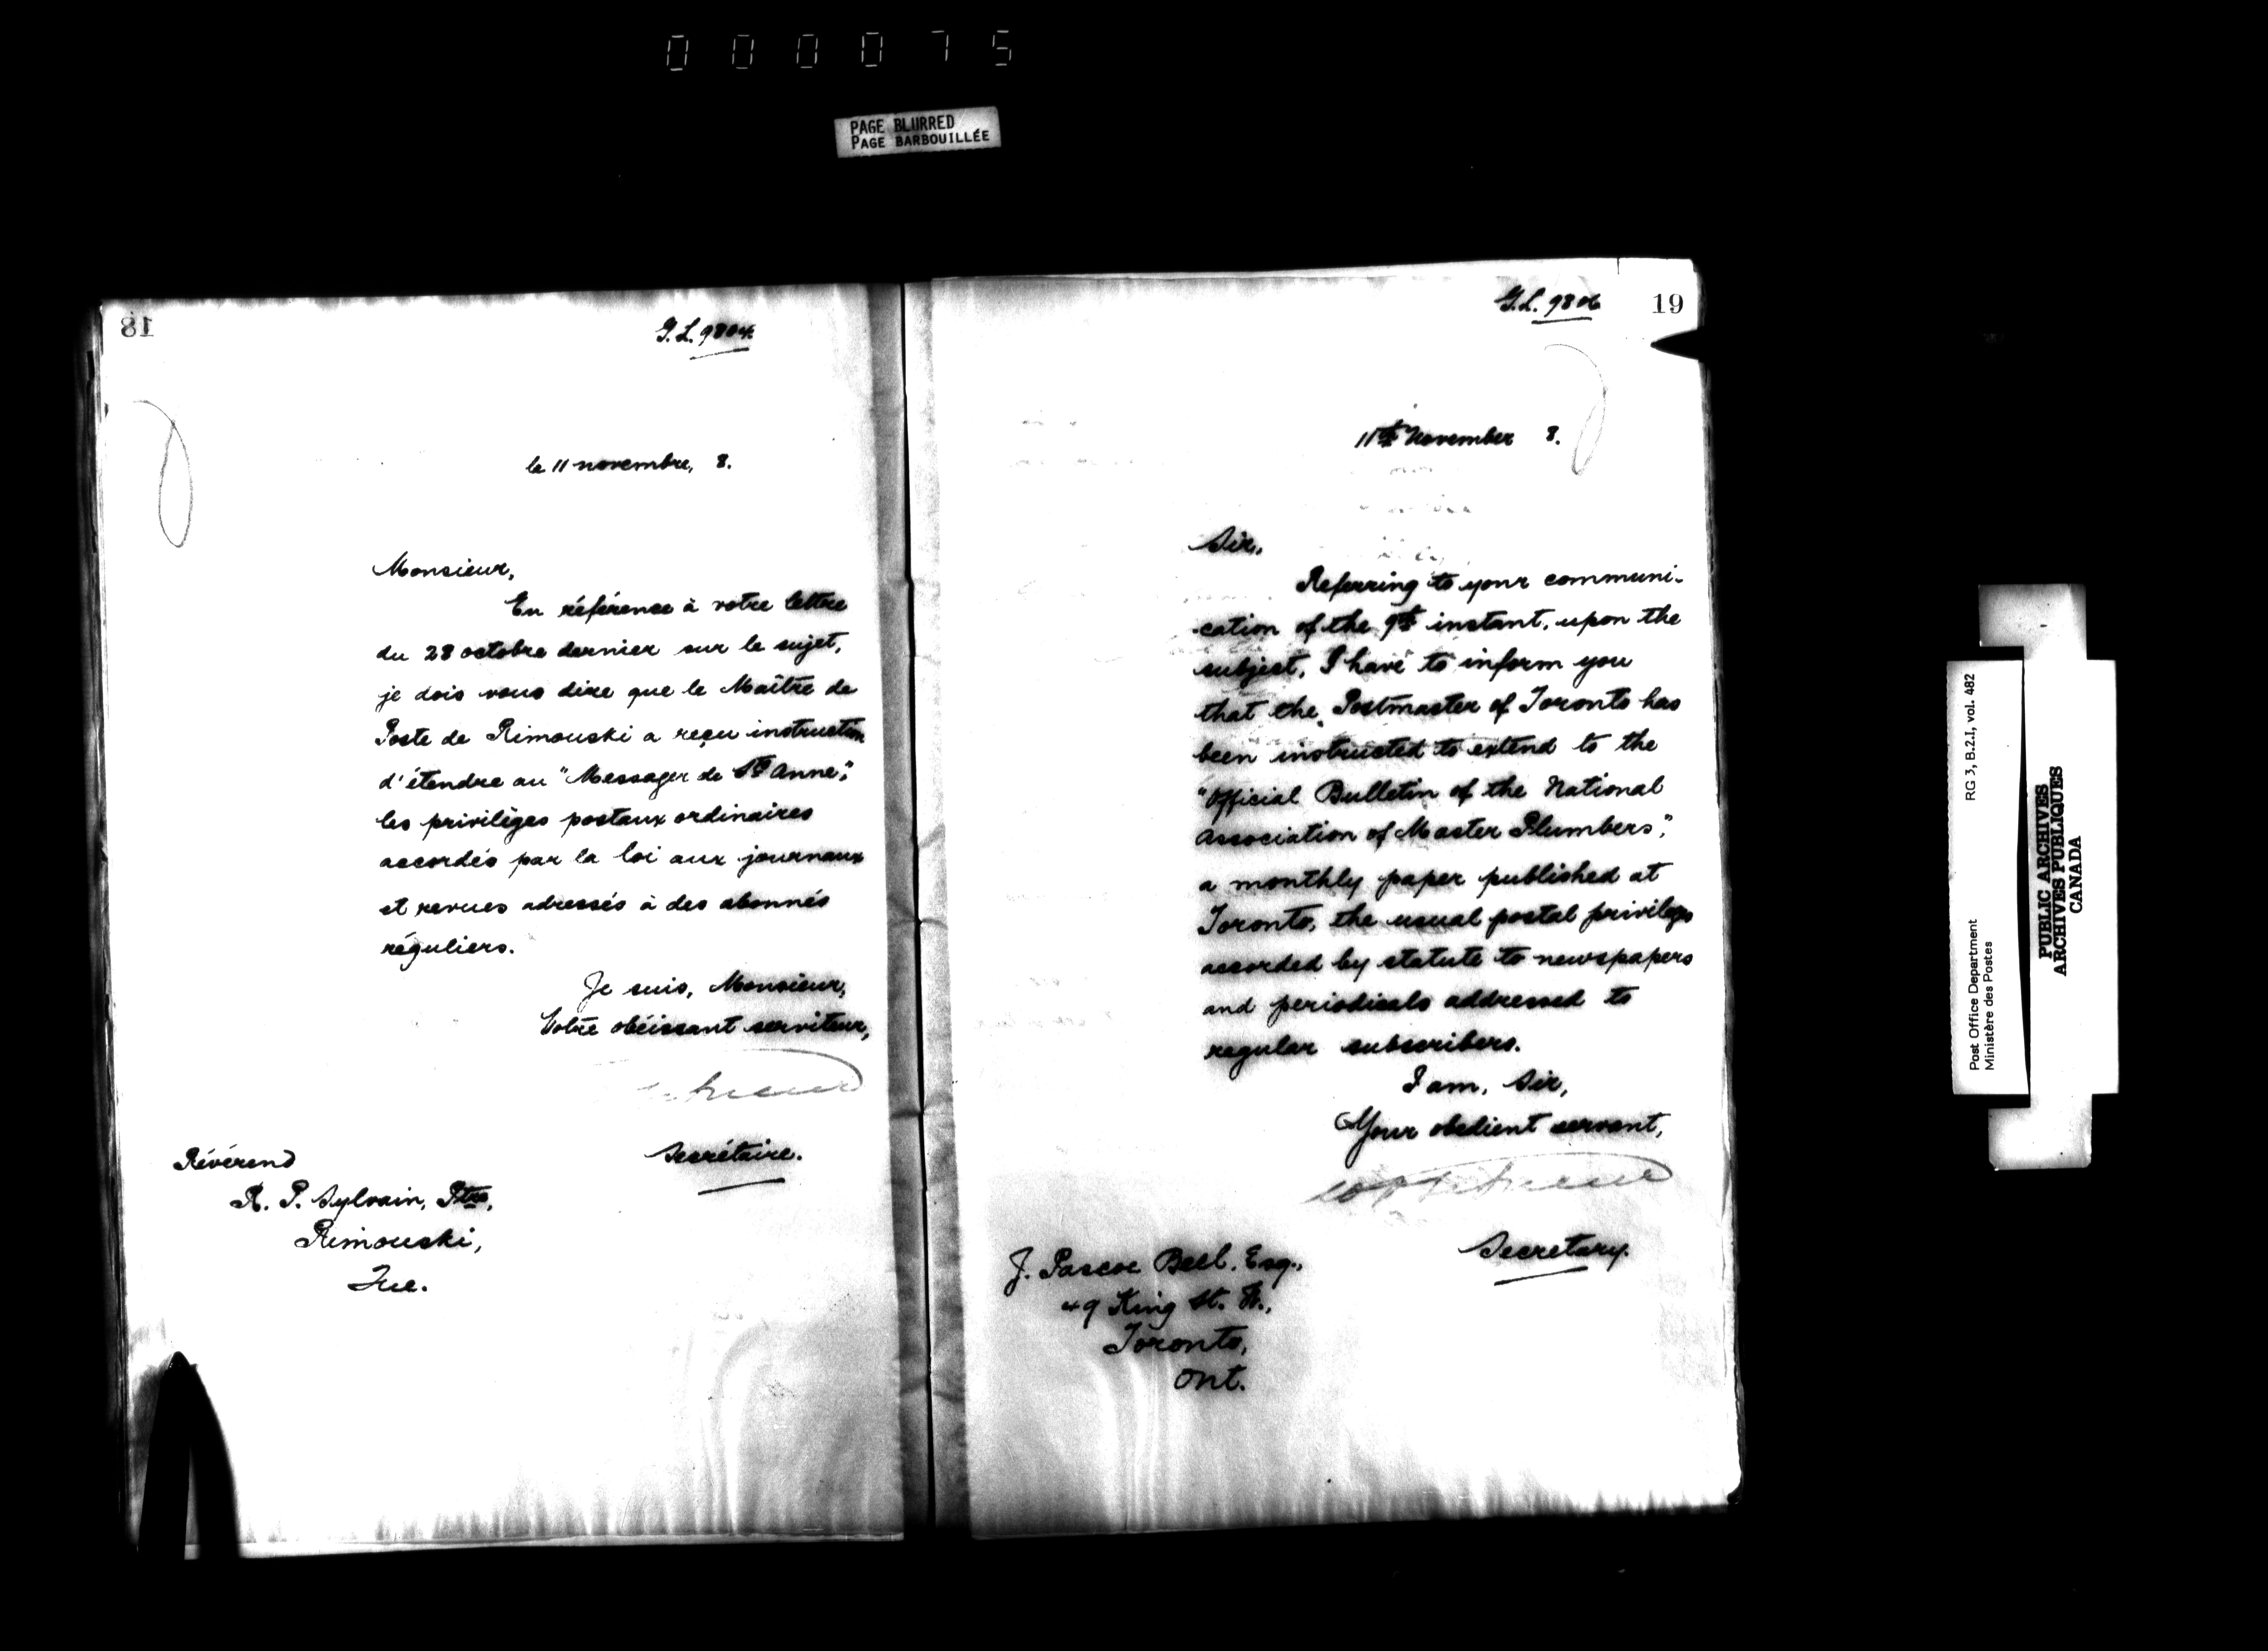 000075
PAGE BLURRED
PAGE BARBOUILLÉE
18
G.L. 9804.
le 11 novembre, 8.
Monsieur,
En référence à votre lettre
du 28 octobre dernier sur le sujet,
je dois vous dire que le Maître de
Poste de Rimouski a reçu instruction
d'étendre au "Messager de Ste Anne",
les privilèges postaux ordinaires
accordés par la loi aux journaux
et revues adressés à des abonnés
réguliers.
Je suis, Monsieur,
Votre obéissant serviteur,
Secrétaire.
Révérend
R. P. Sylvain, Ptre,
Rimouski,
Que.
G.L. 9806
19
11th November 8.
Sir,
Referring to your communi-
cation of the 9th instant, upon the
subject, I have to inform you
that the Postmaster of Toronto has
been instructed to extend to the
"Official Bulletin of the National
Association of Master Plumbers",
a monthly paper published at
Toronto, the usual postal privileges
accorded by statute to newspapers
and periodicals addressed to
regular subscribers.
I am, Sir,
Your obedient servant,
Secretary.
J. Pascoe Bell, Esq.,
49 King St. W.,
Toronto,
Ont.
Post Office Department RG 3, B.2.I, vol. 482
Ministère des Postes
PUBLIC ARCHIVES
ARCHIVES PUBLIQUES
CANADA